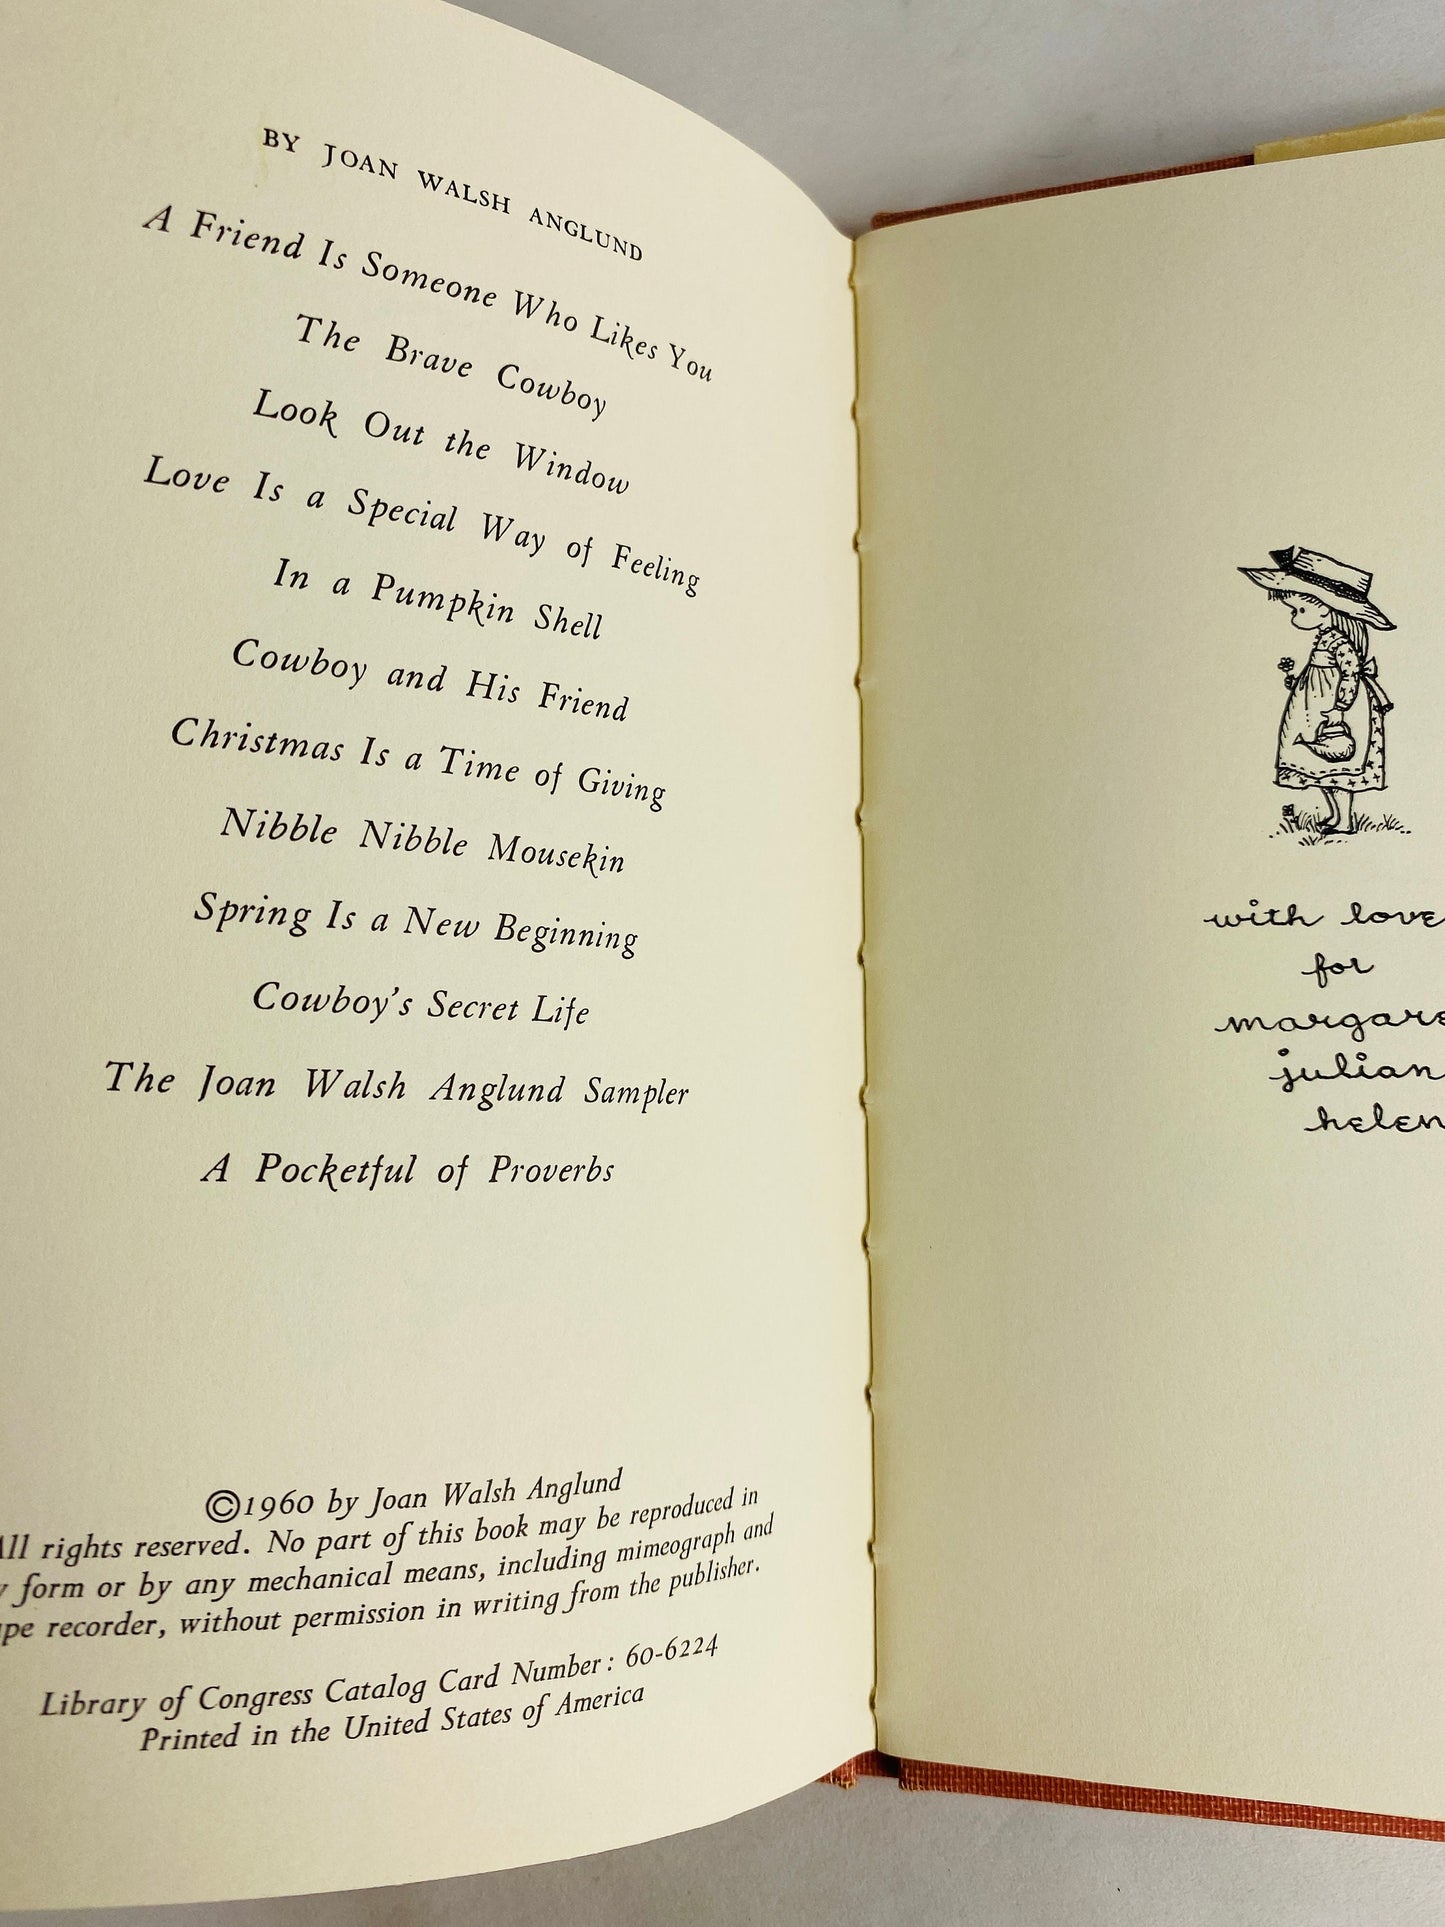 BY JOAN WALSH ANGLUND
A Friend Is Someone Who Likes You
The Brave Cowboy
Look Out the Window
Love Is a Special Way of Feeling
In a Pumpkin Shell
Cowboy and His Friend
Christmas Is a Time of Giving
Nibble Nibble Mousekin
Spring Is a New Beginning
Cowboy's Secret Life
The Joan Walsh Anglund Sampler
A Pocketful of Proverbs
©1960 by Joan Walsh Anglund
All rights reserved. No part of this book may be reproduced in
form or by any mechanical means, including mimeograph and
recorder, without permission in writing from the publisher.
Library of Congress Catalog Card Number: 60-6224
Printed in the United States of America
with love
for
margare
julian
helen